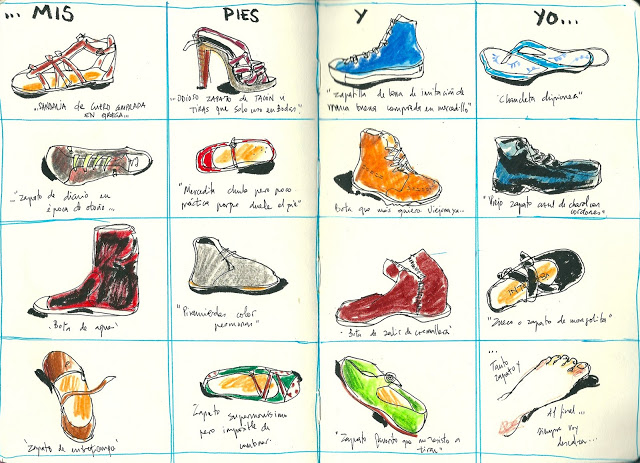 ... MIS PIES Y YO...
"SANDALIA DE CUERO COMPRADA
EN GRECIA...
..ODIOSO ZAPATO DE TACON Y
TIRAS que solo uso en Bodas".
"Zapatilla de lona de imitación de
marca buena comprada en mercadillo"
"Chancleta
..."Zapato de diario en
época de otoño...
"Mercedita chula pero poco
práctica porque duele el pie"
"Bota que más quiero Viejona ya..
"Viejo zapato azul de charol con
cordones"
"Bota de agua"
"Pisamierdas color
"Bota de salir de cremallera"
"Zueco o zapato de
"Zapato de entretiempo"
Zapato supermonísimo
pero imposible de
combinar.
"Zapato favorito que me resisto a
tirar"
...
Tanto
zapato y
Al final...
siempre voy
descalza...